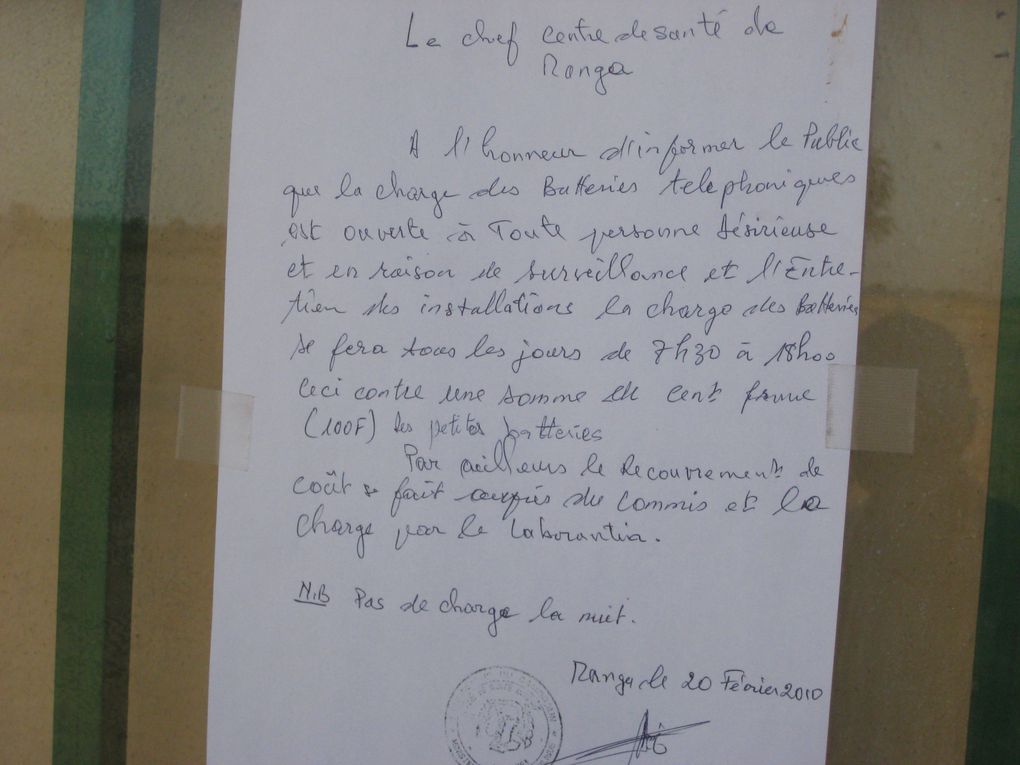 Le chef centre de santé de
Ranga
A l'honneur d'informer le Public
que la charge des Batteries telephoniques
est ouverte à Toute personne désirieuse
et en raison de surveillance et l'Entre-
tien des installations la charge des Batteries
se fera tous les jours de 7h30 à 18h00
ceci contre une somme de cent franc
(100F) les petites batteries
Par ailleurs le recouvrement de
coût se fait auprès du Commis et la
charge par le Laborantin.
N.B Pas de charge la nuit.
Ranga le 20 Février 2010